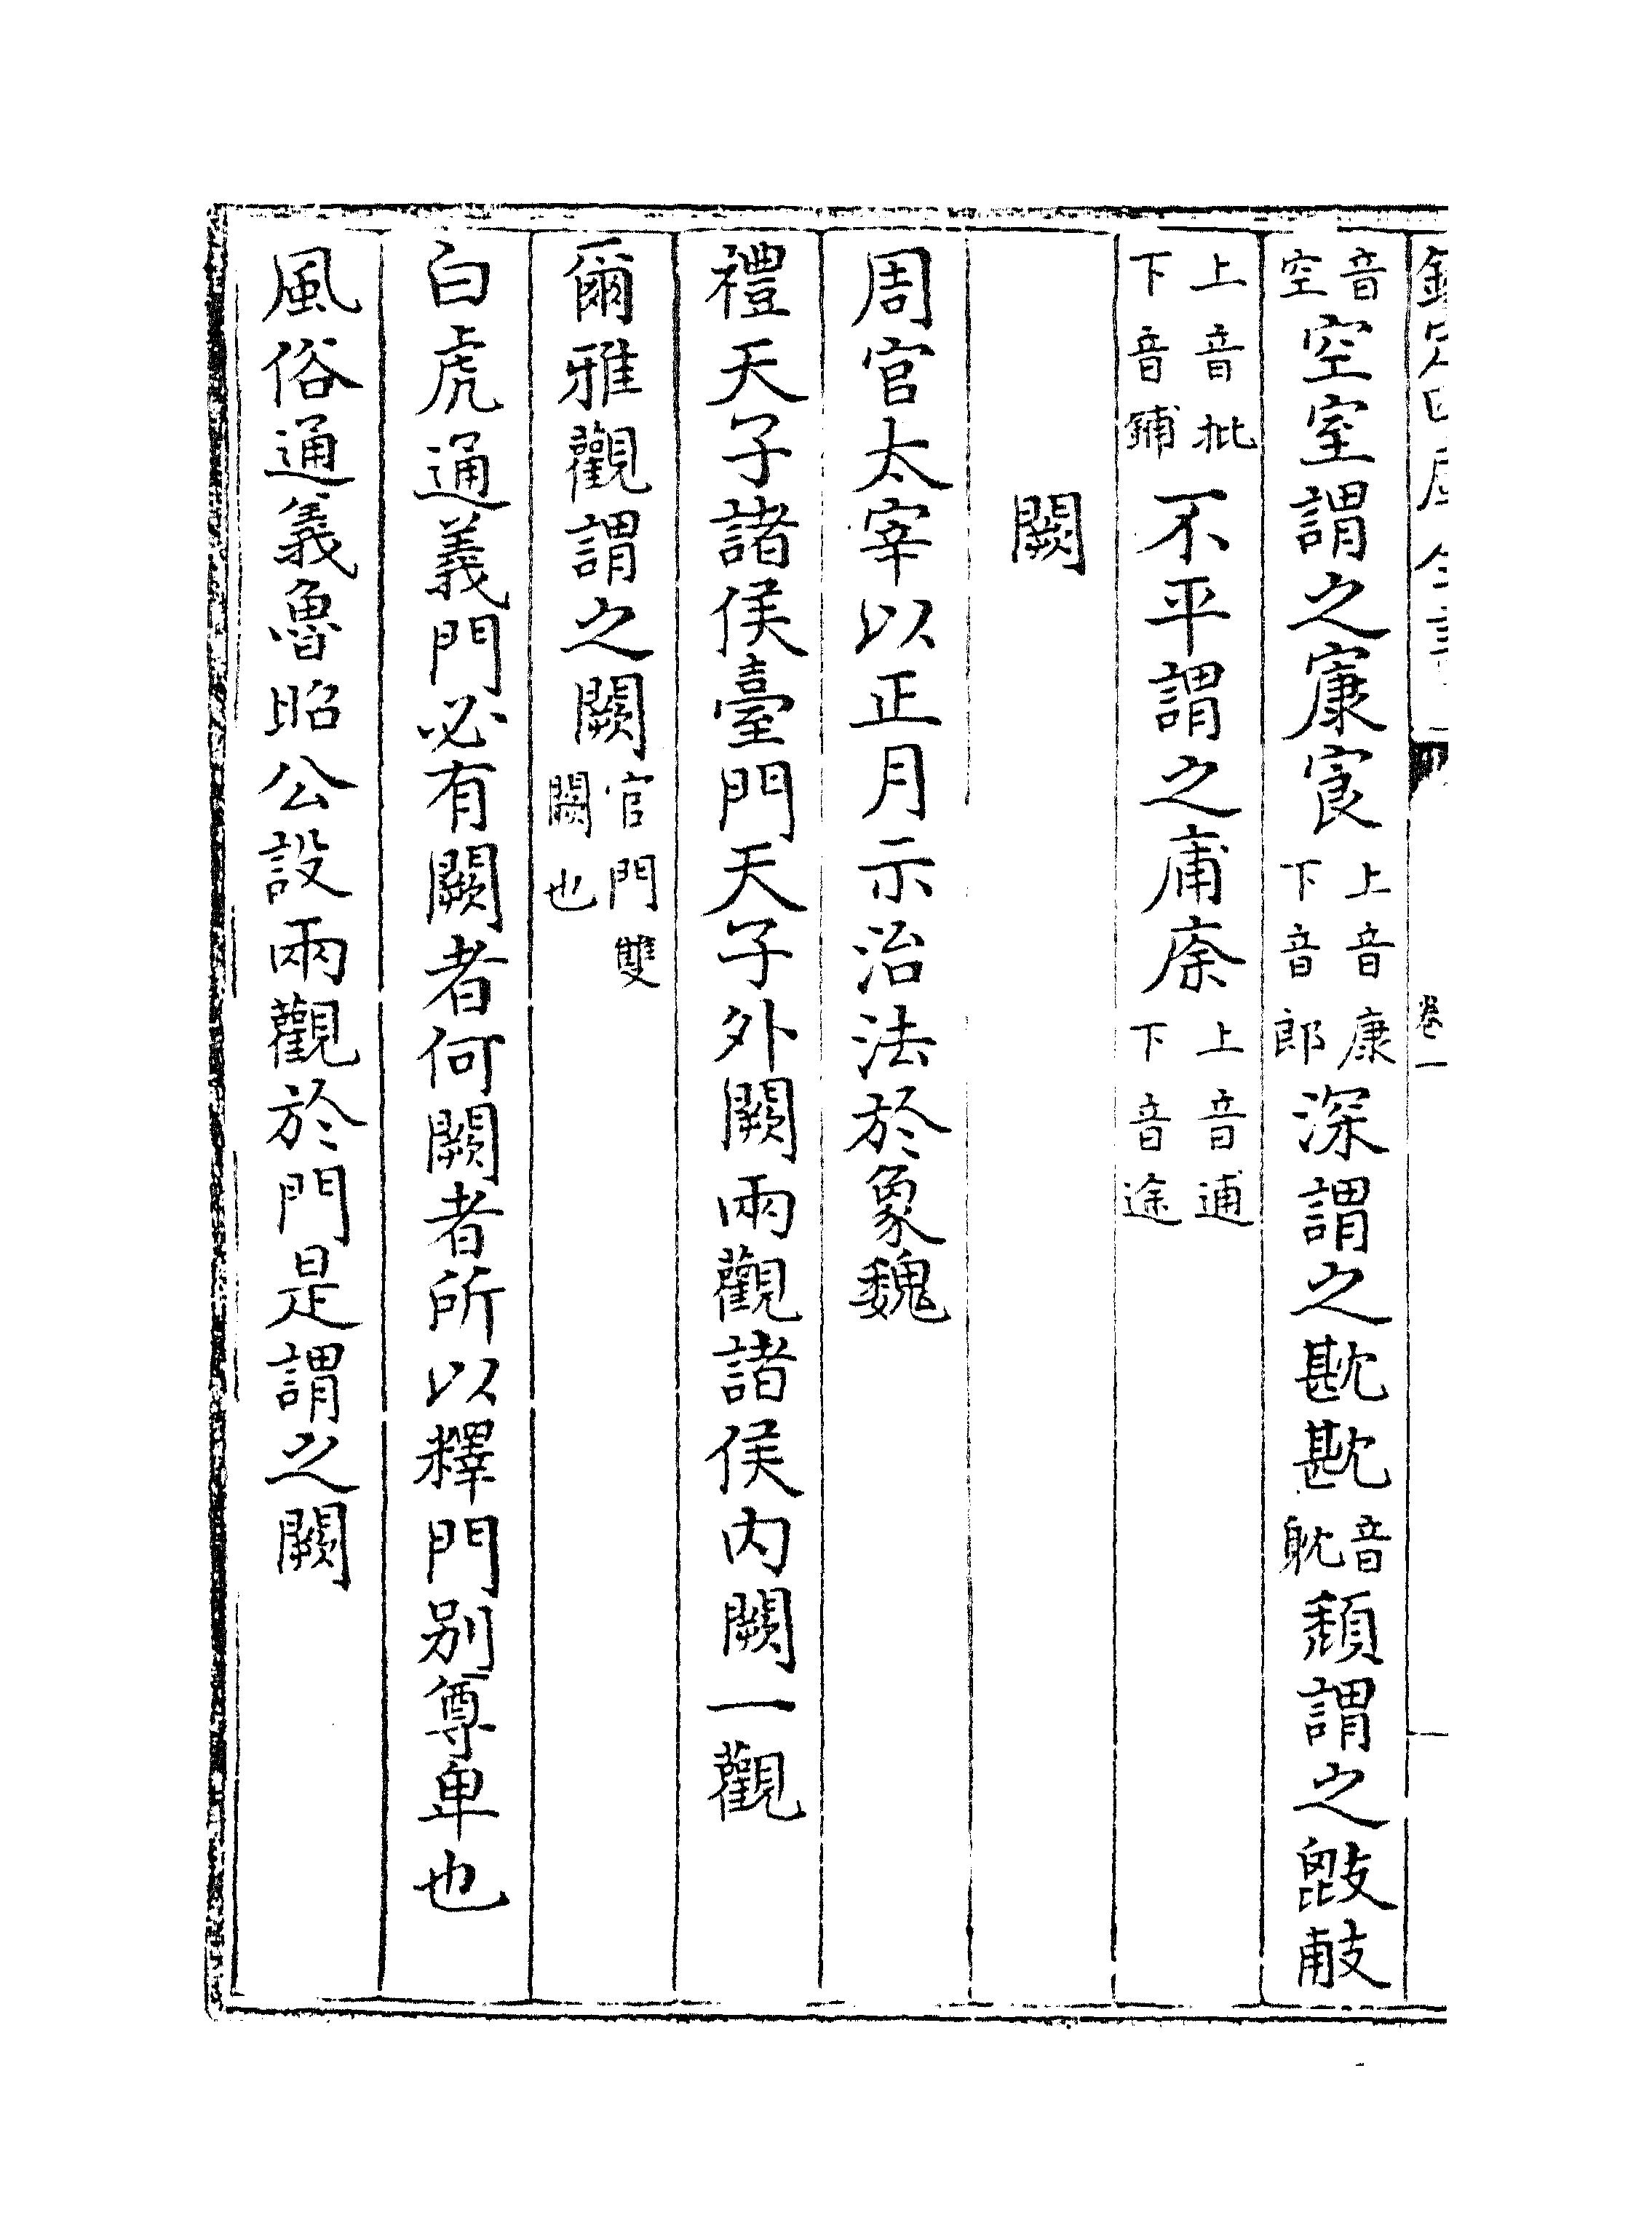 欽定四庫全書 卷一
音空空室謂之㝩㝗上音康下音郎深謂之音躭頽謂之
上音批下音鋪不平謂之庯庩上音逋下音途
闕
周官太宰以正月示治法於象魏
禮天子諸侯臺門天子外闕兩觀諸侯内闕一觀
爾雅觀謂之闕官門雙闕也
白虎通義門必有闕者何闕者所以釋門别尊卑也
風俗通義魯昭公設兩觀於門是謂之闕